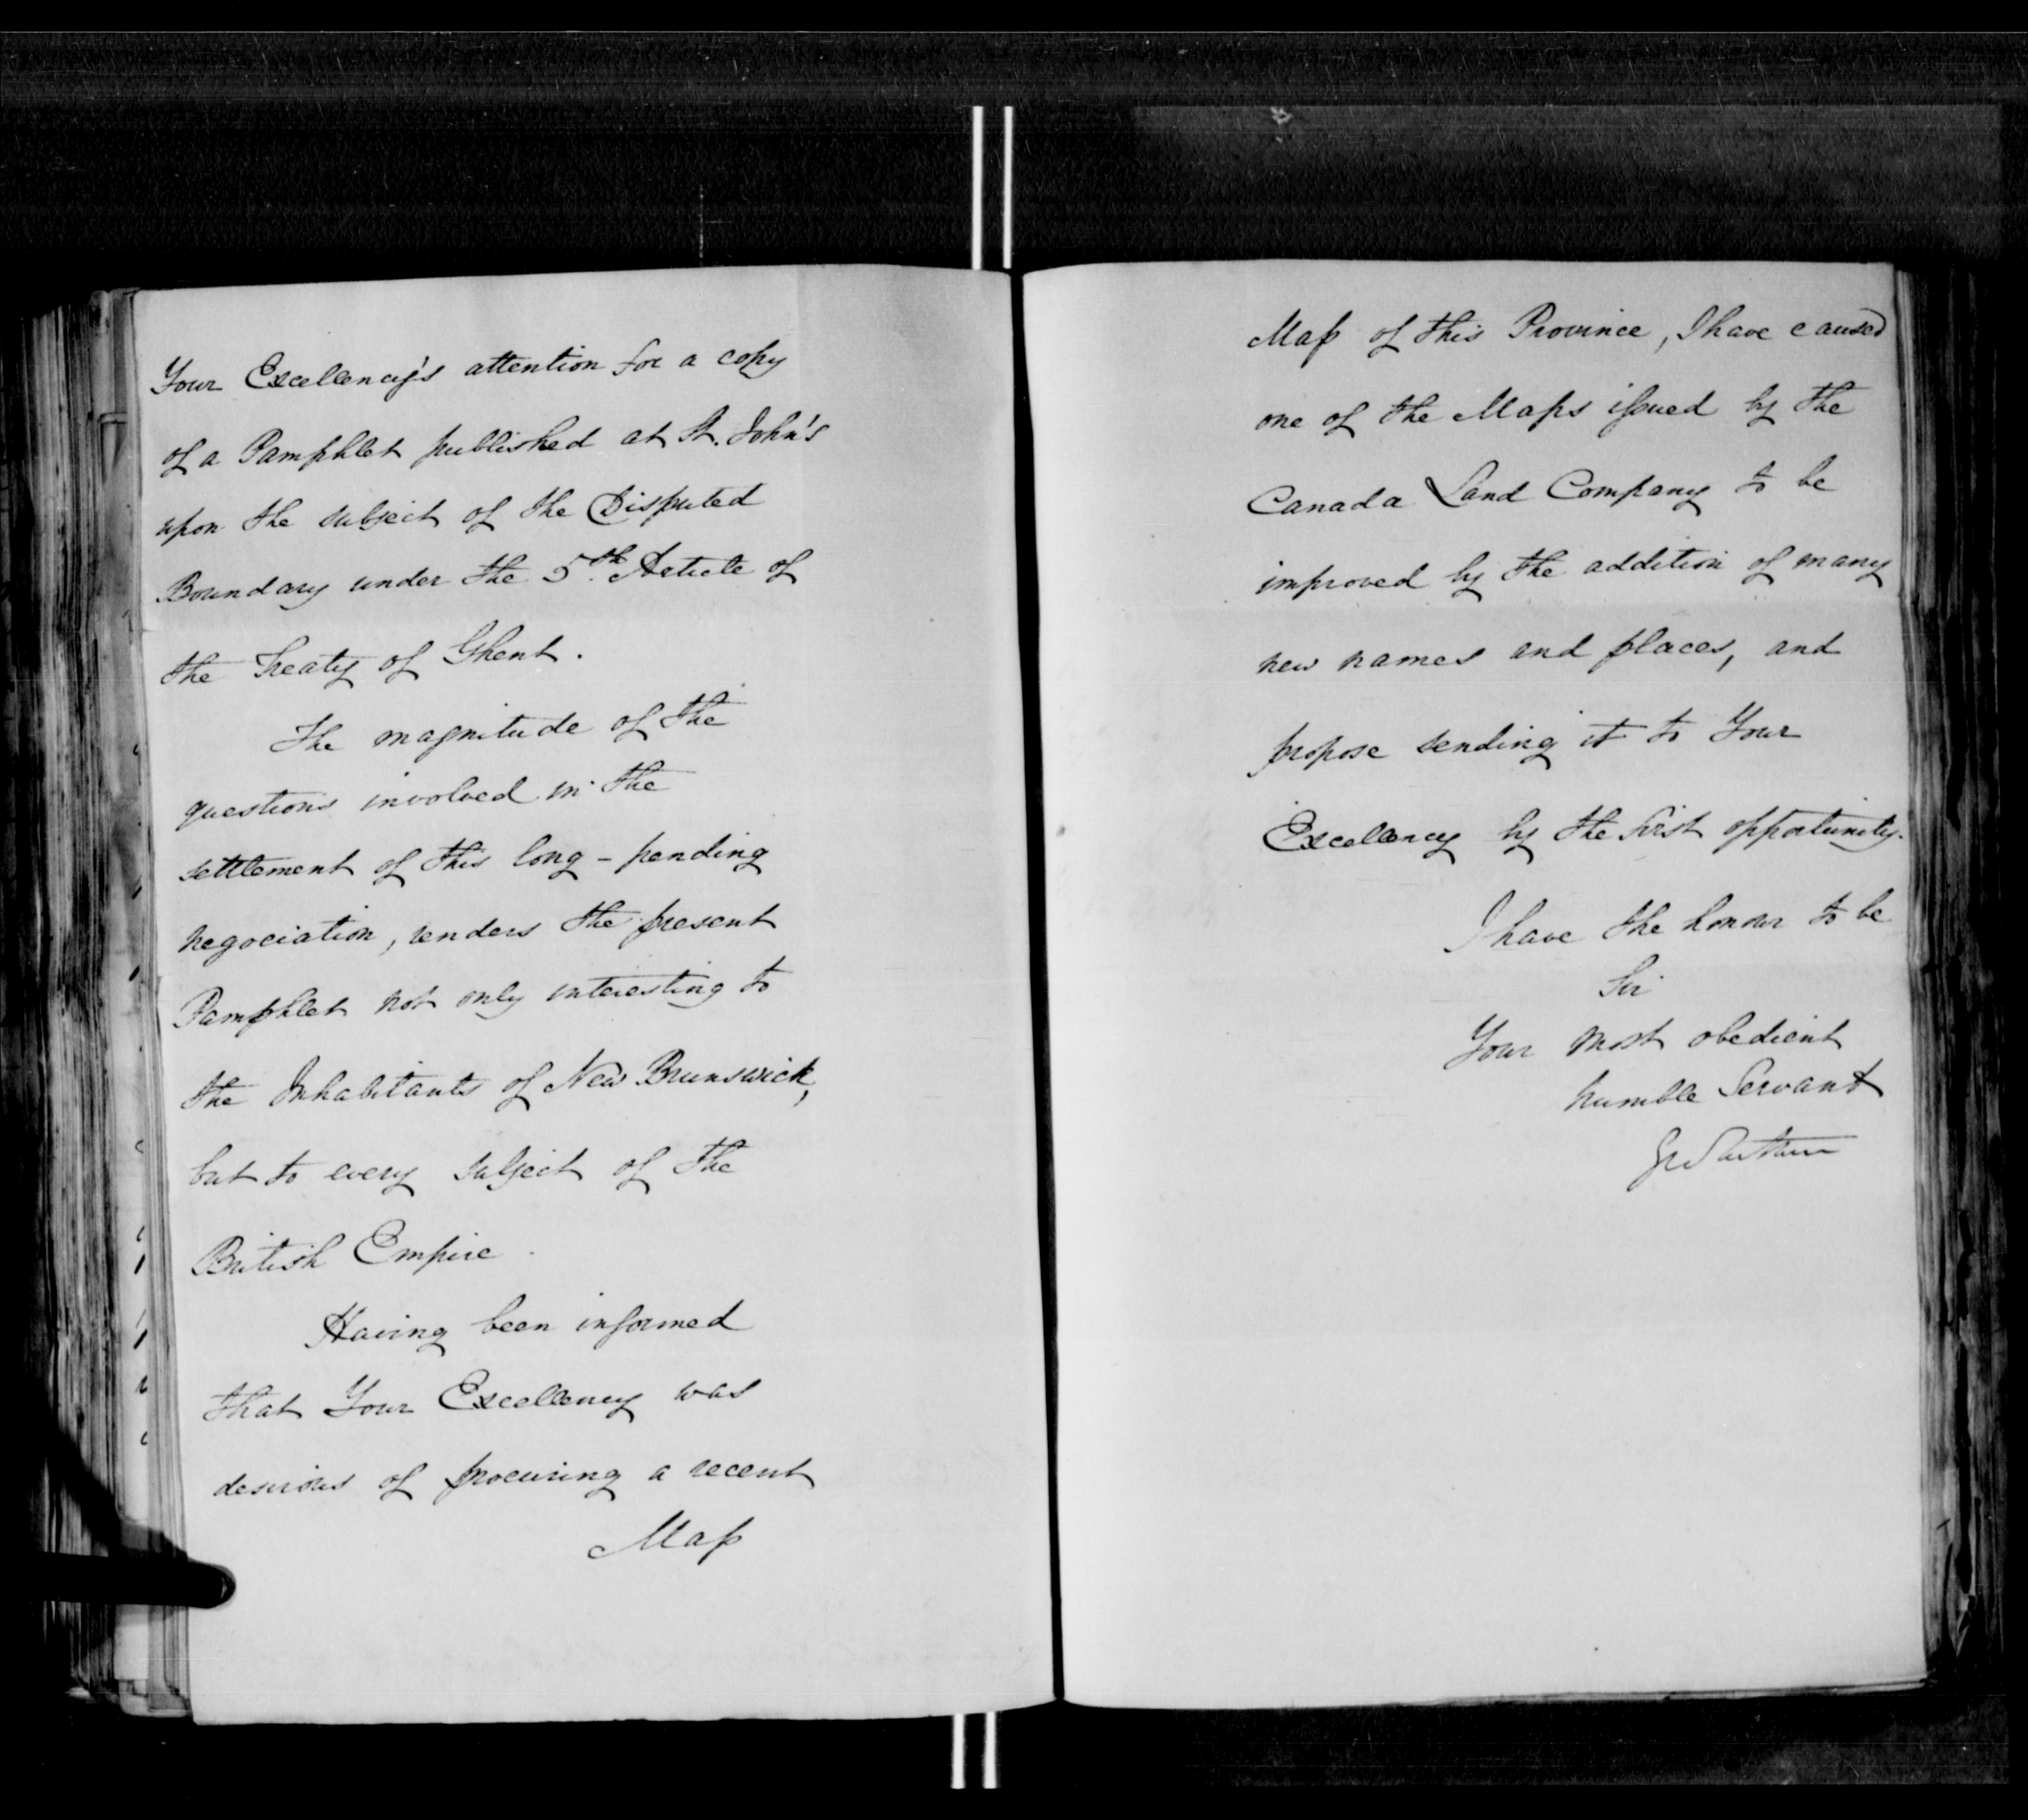 Your Excellency's attention for a copy
of a Pamphlet published at St. John's
upon the subject of the Disputed
Boundary under the 5th Article of
the Treaty of Ghent.
The magnitude of the
questions involved in the
settlement of this long - pending
negociation, renders the present
Pamphlet not only interesting to
the Inhabitants of New Brunswick,
but to every subject of the
British Empire.
Having been informed
that Your Excellency was
desirous of procuring a recent
Map
Map of this Province, I have caused
one of the Maps issued by the
Canada Land Company to be
improved by the addition of many
new names and places, and
propose sending it to Your
Excellency by the first opportunity.
I have the honor to be
Sir
Your most obedient
humble Servant